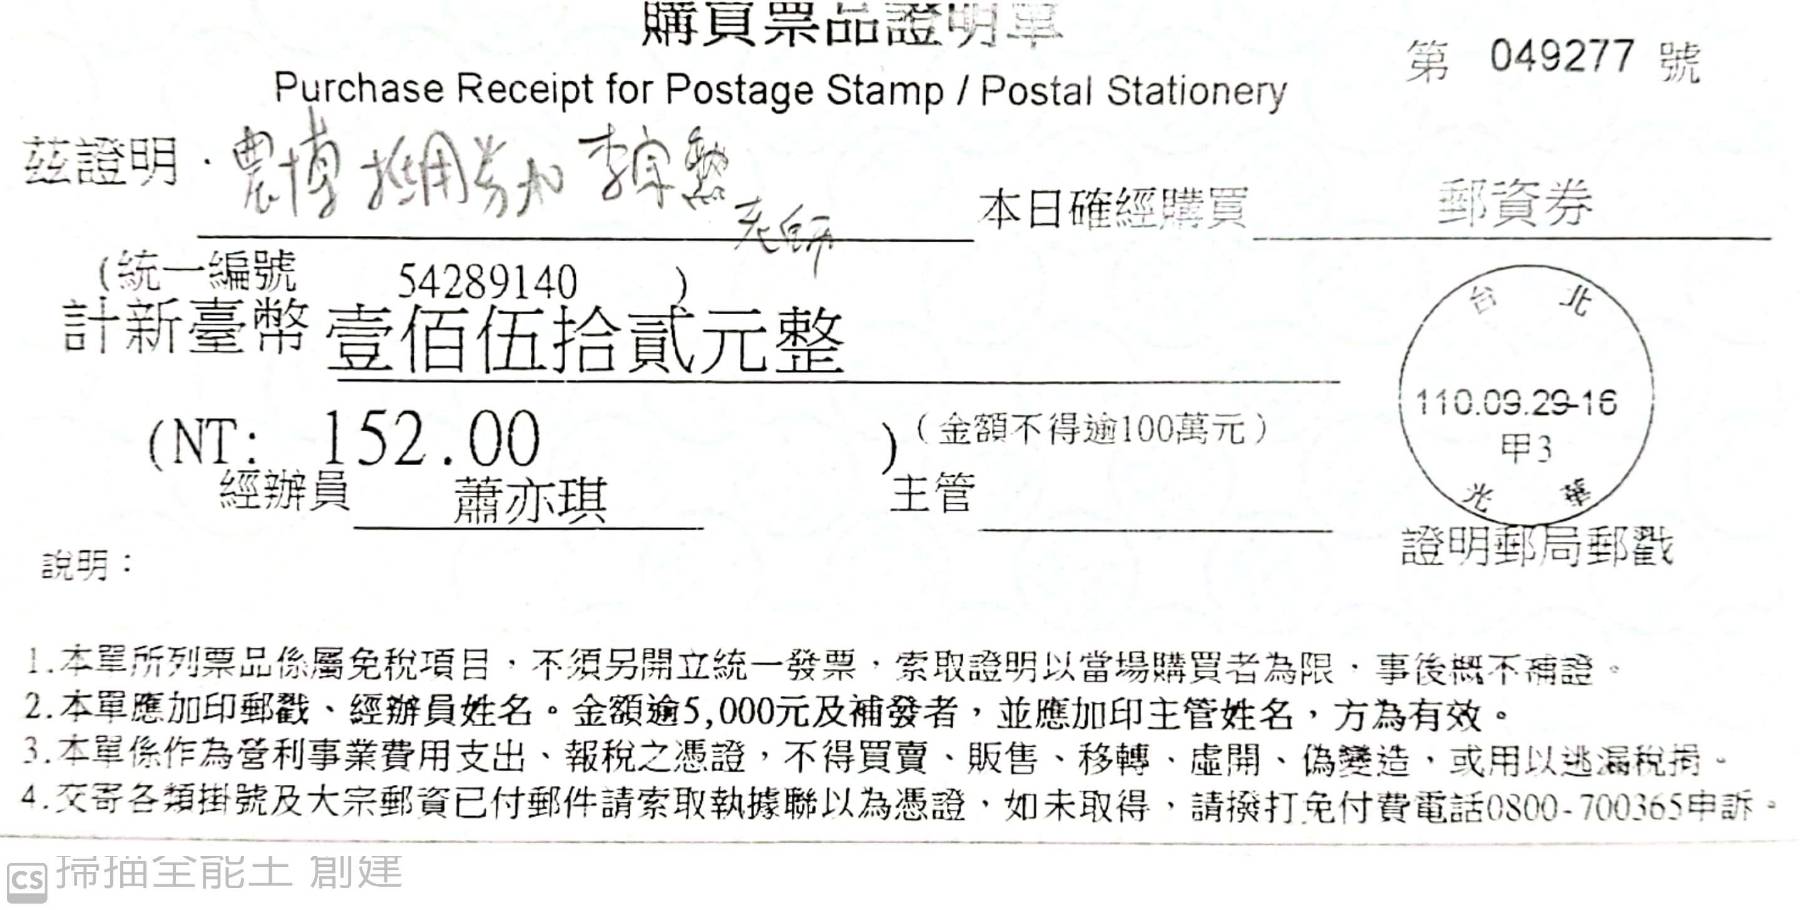 購買票品證明單
第 049277 號
Purchase Receipt for Postage Stamp / Postal Stationery
茲證明 農博 李宗 老師 本日確經購買 郵資券
(統一編號 54289140 )
計新臺幣 壹佰伍拾貳元整
(NT: 152.00 ) (金額不得逾100萬元)
經辦員 蕭亦琪 主管
台北
110.09.29-16
甲3
光華
證明郵局郵戳
說明：
1.本單所列票品係屬免稅項目，不須另開立統一發票，索取證明以當場購買者為限，事後概不補證。
2.本單應加印郵戳、經辦員姓名。金額逾5,000元及補發者，並應加印主管姓名，方為有效。
3.本單係作為營利事業費用支出、報稅之憑證，不得買賣、販售、移轉、虛開、偽變造，或用以逃漏稅捐。
4.交寄各類掛號及大宗郵資已付郵件請索取執據聯以為憑證，如未取得，請撥打免付費電話0800-700365申訴。
CS 掃描全能王 創建